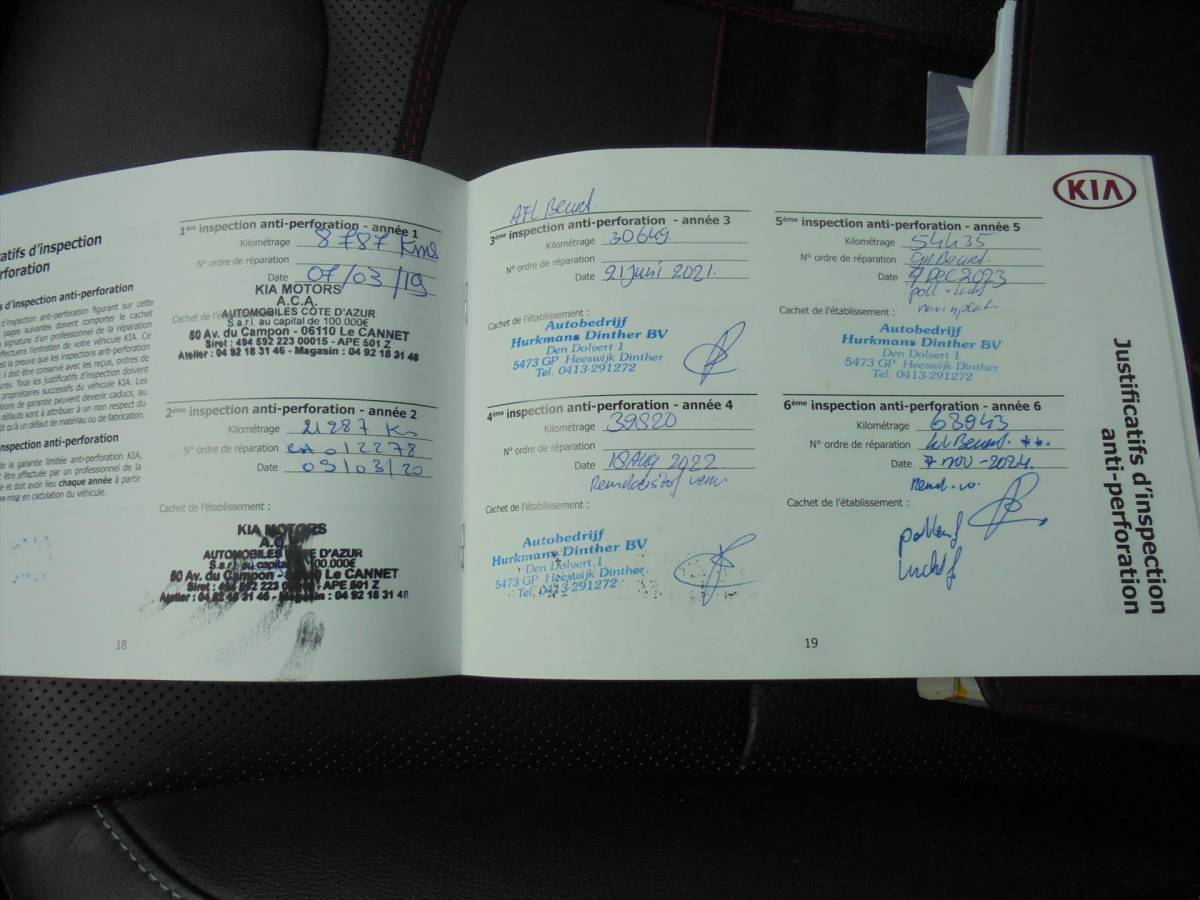 catifs d'inspection
rforation
s d'inspection anti-perforation
d'inspection anti-perforation figurant sur cette
pages suivantes doivent comporter le cachet
signature d'un professionnel de la réparation
effectuera l'entretien de votre véhicule KIA. Ce
la preuve que les inspections anti-perforation
il doit être conservé avec les reçus, ordres de
ures. Tous les justificatifs d'inspection doivent
propriétaires successifs du véhicule KIA. Les
tions de garantie peuvent devenir caducs, au
défauts sont à attribuer à un non respect du
ôt qu'à un défaut de matériau ou de fabrication.
nspection anti-perforation
de la garantie limitée anti-perforation KIA,
être effectuée par un professionnel de la
e et doit avoir lieu chaque année à partir
re mise en circulation du véhicule.
18
1ère inspection anti-perforation - année 1
Kilométrage 8787 Kms
N° ordre de réparation
Date 07/03/19
Cachet de l'établissement :
KIA MOTORS
A.C.A.
AUTOMOBILES CÔTE D'AZUR
S.a.r.l. au capital de 100.000€
50 Av. du Campon - 06110 Le CANNET
Siret : 494 592 223 00015 - APE 501 Z
Atelier : 04 92 18 31 46 - Magasin : 04 92 18 31 48
2ème inspection anti-perforation - année 2
Kilométrage 21287 Km
N° ordre de réparation 012278
Date 09/03/20
Cachet de l'établissement :
KIA MOTORS
AUTOMOBILES CÔTE D'AZUR
S.a.r.l. au capital 100.000€
50 Av. du Campon - Le CANNET
Siret : 494 592 223 - APE 501 Z
Atelier : 04 92 18 31 46 - Magasin : 04 92 18 31 48
AFL Beurt
3ème inspection anti-perforation - année 3
Kilométrage 30649
N° ordre de réparation
Date 21 Juni 2021.
Cachet de l'établissement :
Autobedrijf
Hurkmans Dinther BV
Den Dolvert 1
5473 GP Heeswijk Dinther
Tel. 0413-291272
4ème inspection anti-perforation - année 4
Kilométrage 39820
N° ordre de réparation
Date 18 Aug 2022
Remvloeistof vern.
Cachet de l'établissement :
Autobedrijf
Hurkmans Dinther BV
Den Dolvert 1
5473 GP Heeswijk Dinther
Tel. 0413-291272
KIA
5ème inspection anti-perforation - année 5
Kilométrage 54435
N° ordre de réparation Gr. Beurt.
Date 7 DEC 2023
poll - lucht
Cachet de l'établissement :
Autobedrijf
Hurkmans Dinther BV
Den Dolvert 1
5473 GP Heeswijk Dinther
Tel. 0413-291272
6ème inspection anti-perforation - année 6
Kilométrage 63943
N° ordre de réparation kl Beurt.
Date 7 nov - 2024.
Remvl. vv.
Cachet de l'établissement :
pollenf
luchtf
19
Justificatifs d'inspection
anti-perforation